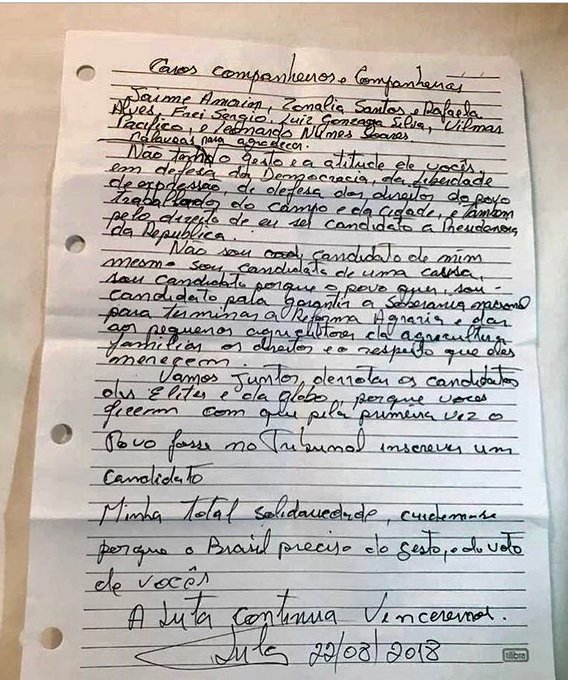 Caros companheiros e Companheiras
Jaime Amorim, Zonalia Santos e Rafaela
Alves, Frei Sergio, Luiz Gonzaga Silva, Vilmar
Pacifico, e Leonardo Nunes Soares.
palavras para agradecer
Não tenho o gesto e a atitude de vocês
em defesa da Democracia, da liberdade
de expressão, de defesa dos direitos do povo
trabalhador do campo e da cidade, e também
pelo direito de eu ser candidato a Presidencia
da Republica.
Não sou candidato de mim
mesmo sou candidato de uma causa,
sou candidato porque o povo quer, sou
candidato para garantir a Soberania nacional
para terminar a Reforma Agraria e dar
aos pequenos agricultores da agricultura
familiar os direitos e o respeito que eles
merecem.
Vamos juntos derrotar os candidatos
das Elites e da globo, porque vocês
fizeram com que pela primeira vez o
Povo fosse no Tribunal inscrever um
candidato
Minha total solidariedade, cuidem-se
porque o Brasil precisa do gesto, e do voto
de vocês
A Luta continua Venceremos.
Lula 22/08/2018
tilibra